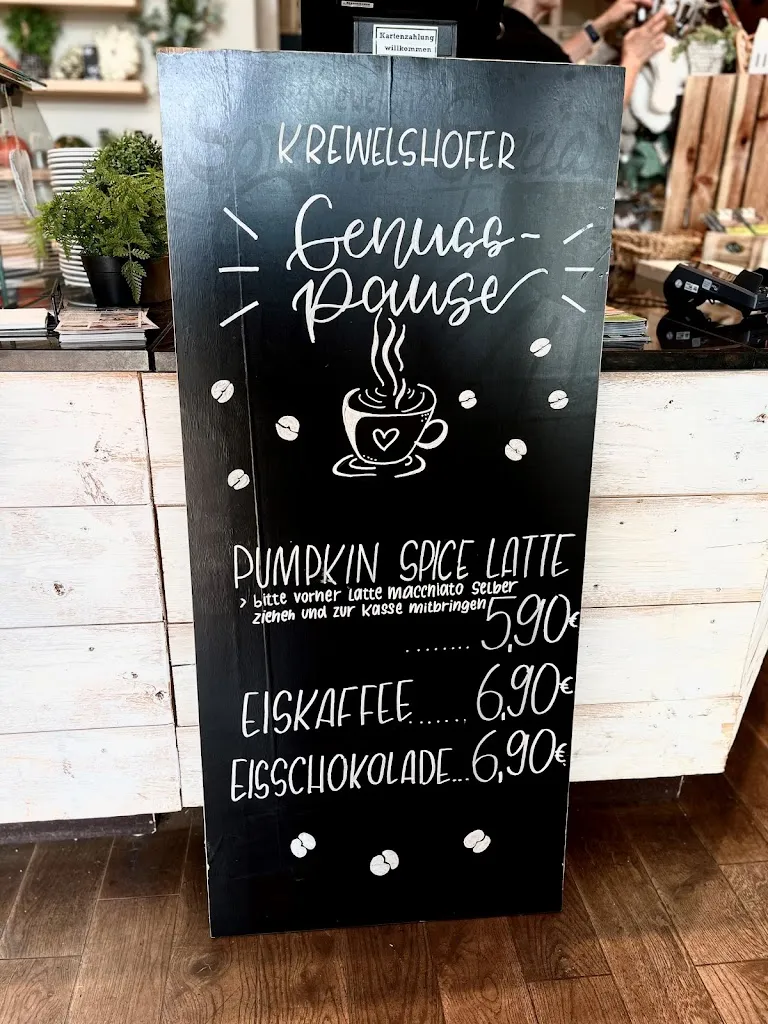 Kartenzahlung
willkommen
KREWELSHOFER
Genuss-
pause
PUMPKIN SPICE LATTE
> bitte vorher Latte macchiato selber
ziehen und zur Kasse mitbringen
........ 5,90€
EISKAFFEE...... 6,90€
EISSCHOKOLADE... 6,90€